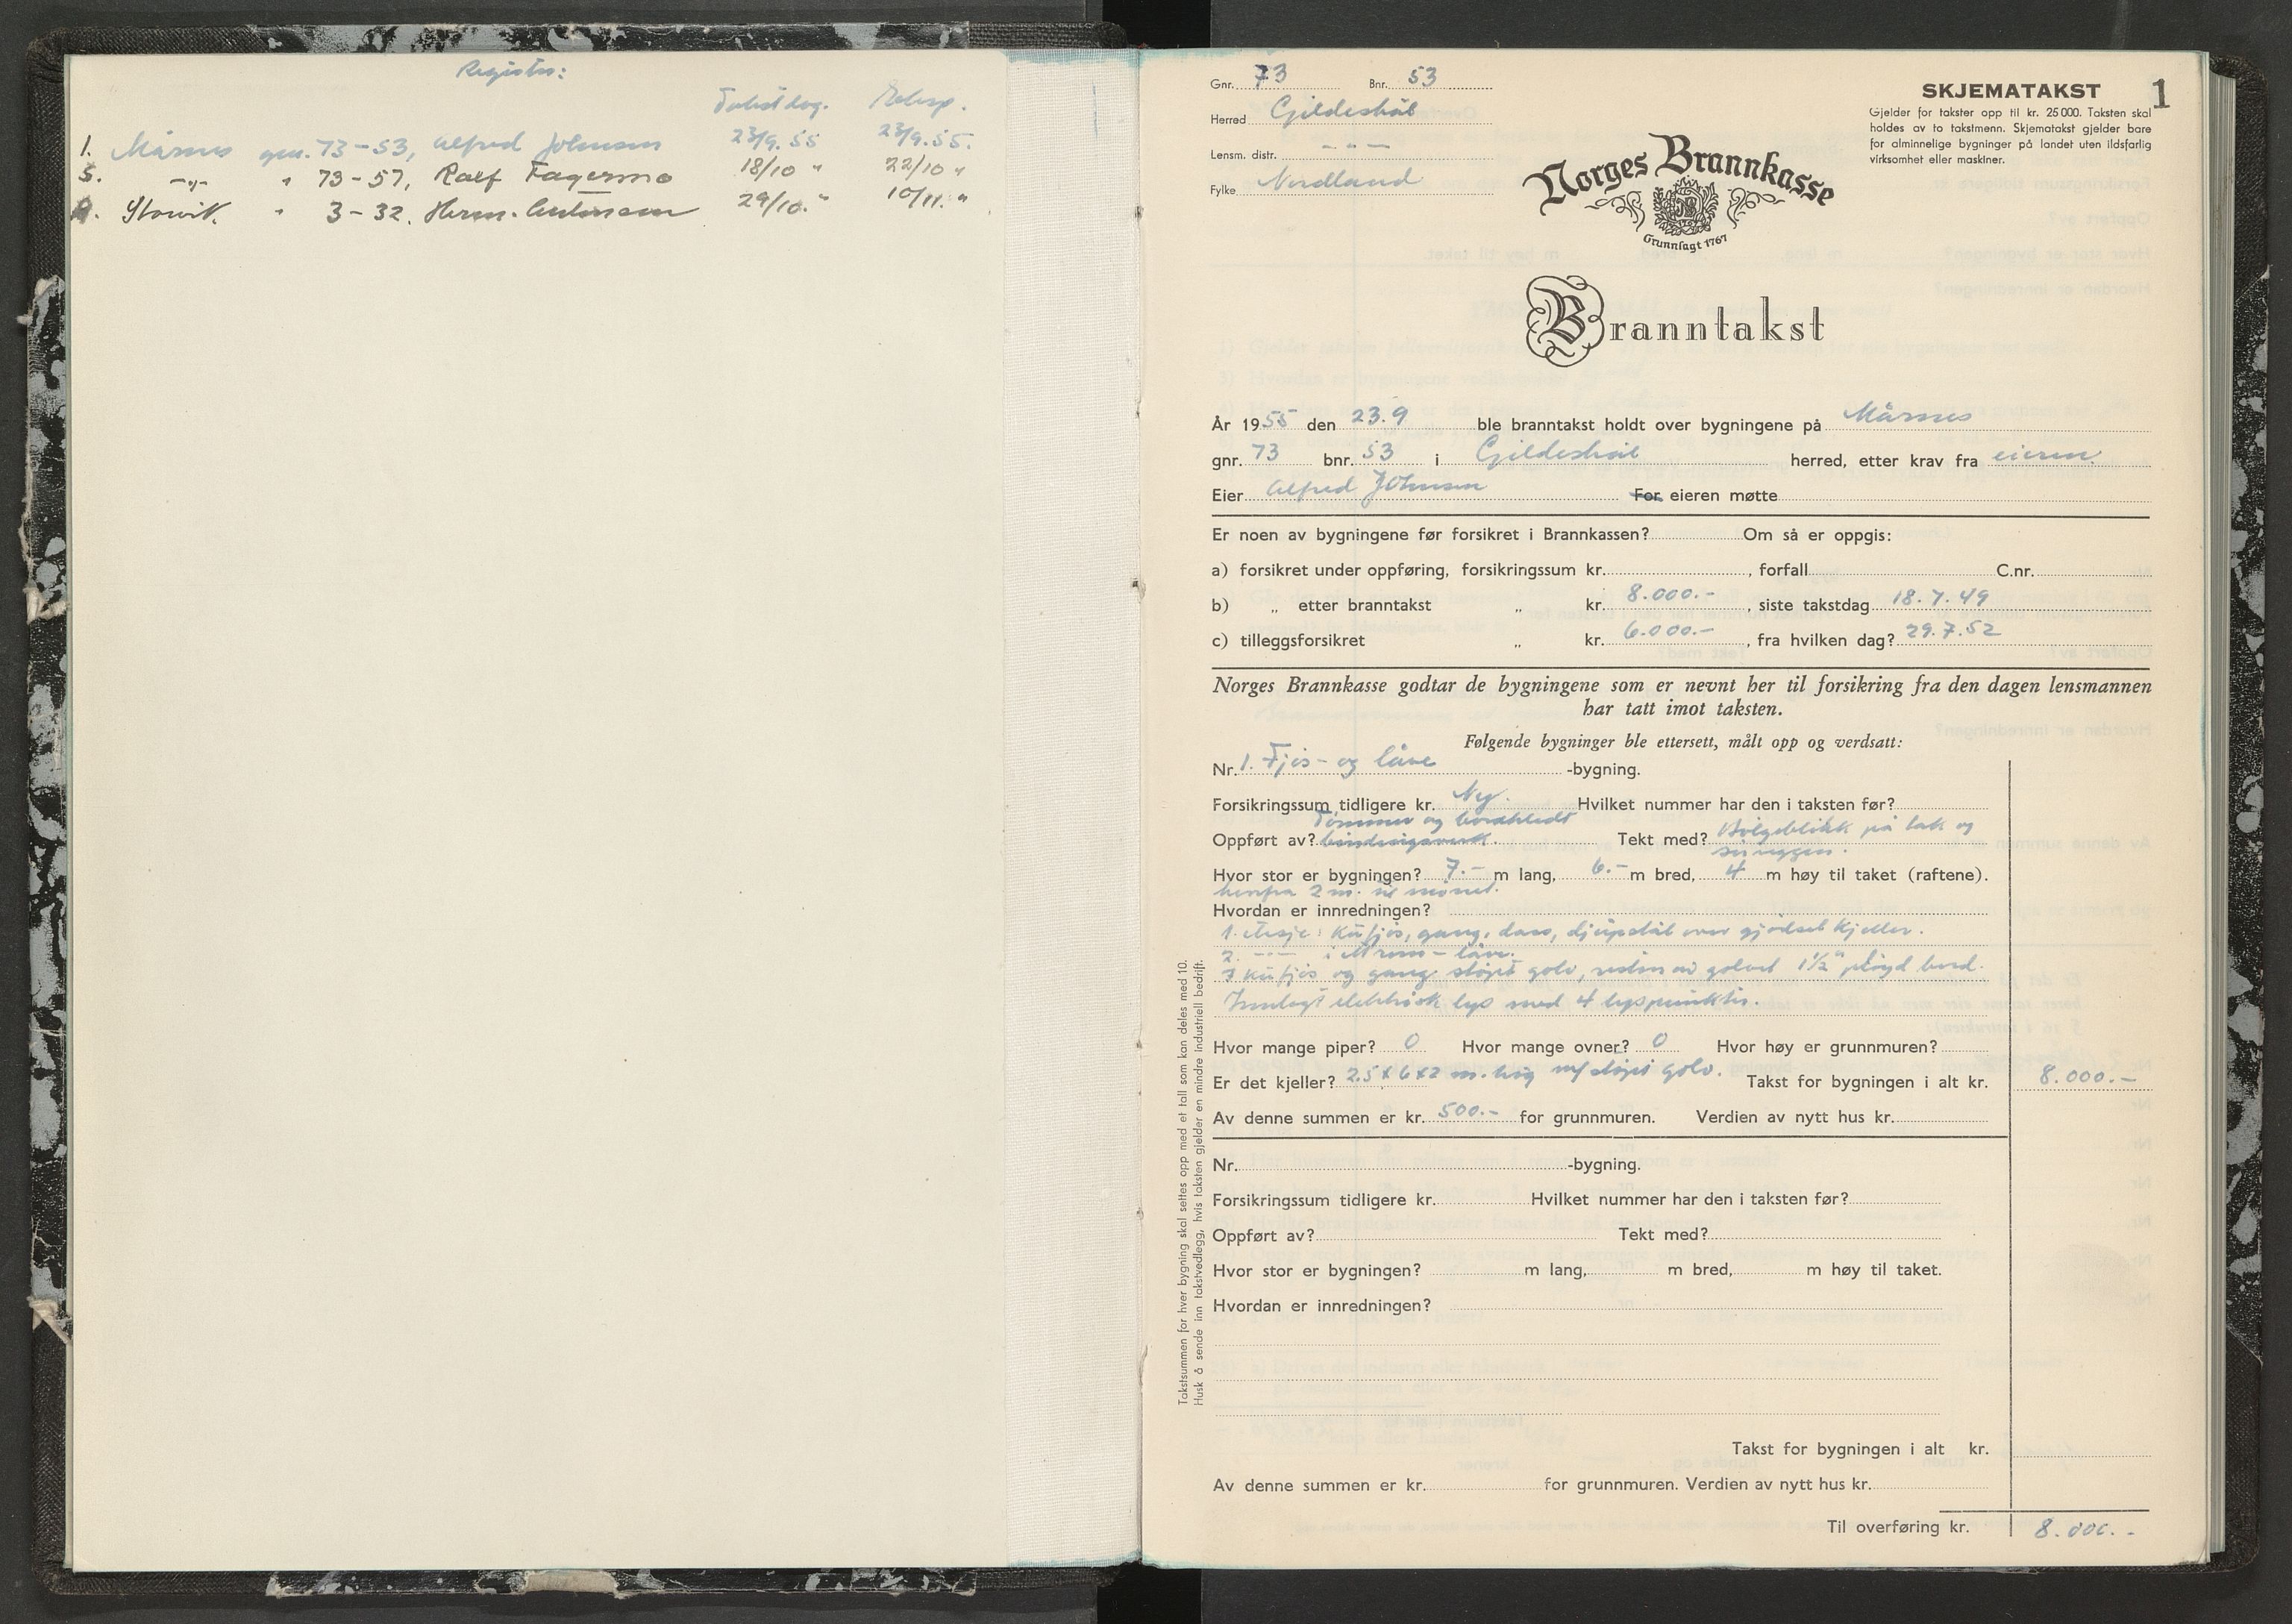 Register:
Takstdag. Eksp.
1. Mårnes gnr. 73-53, Alfred Johnsen 23/9.55 23/9.55.
5. -"- " 73-57, Rolf Fagermo 18/10 " 22/10 "
9. Storvik. " 3-32. Herm. 29/10. " 10/11. "
Gnr. 73 Bnr. 53
Herred Gildeskål
Lensm. distr. - " -
Fylke Nordland
Norges Brannkasse
Grunnlagt 1767
SKJEMATAKST 1
Gjelder for takster opp til kr. 25 000. Taksten skal
holdes av to takstmenn. Skjematakst gjelder bare
for alminnelige bygninger på landet uten ildsfarlig
virksomhet eller maskiner.
Branntakst
År 1955 den 23.9 ble branntakst holdt over bygningene på Mårnes
gnr. 73 bnr. 53 i Gildeskål herred, etter krav fra eieren.
Eier Alfred Johnsen For eieren møtte
Er noen av bygningene før forsikret i Brannkassen? Om så er oppgis:
a) forsikret under oppføring, forsikringssum kr. , forfall C.nr.
b) „ etter branntakst „ kr. 8.000.- , siste takstdag 18.7.49
c) tilleggsforsikret „ kr. 6.000.- , fra hvilken dag? 29.7.52
Norges Brannkasse godtar de bygningene som er nevnt her til forsikring fra den dagen lensmannen
har tatt imot taksten.
Følgende bygninger ble ettersett, målt opp og verdsatt:
Nr. 1. Fjøs- og låve -bygning.
Forsikringssum tidligere kr. Ny. Hvilket nummer har den i taksten før?
Tømmer og bordkledt
Oppført av? bindingsverk. Tekt med? Bølgeblikk på tak og
Hvor stor er bygningen? 7.- m lang, 6.- m bred, 4 m høy til taket (raftene).
herfra 2 m. til mønet.
Hvordan er innredningen?
1. etasje: Kufjøs, gang, dass, djupstål over gjødselkjeller.
2. -"- : låve.
I kufjøs og gang støpt golv, resten av golvet 1½" pløyd bord.
Innlagt elektrisk lys med 4 lyspunkter.
Hvor mange piper? 0 Hvor mange ovner? 0 Hvor høy er grunnmuren?
Er det kjeller? 2.5 x 6 x 2 m. høg m/støpt golv. Takst for bygningen i alt kr. 8.000.-
Av denne summen er kr. 500.- for grunnmuren. Verdien av nytt hus kr.
Nr. -bygning.
Forsikringssum tidligere kr. Hvilket nummer har den i taksten før?
Oppført av? Tekt med?
Hvor stor er bygningen? m lang, m bred, m høy til taket.
Hvordan er innredningen?
Takst for bygningen i alt kr.
Av denne summen er kr. for grunnmuren. Verdien av nytt hus kr.
Til overføring kr. 8.000.-
Takstsummen for hver bygning skal settes opp med et tall som kan deles med 10.
Husk å sende inn takstvedlegg, hvis taksten gjelder en mindre industriell bedrift.